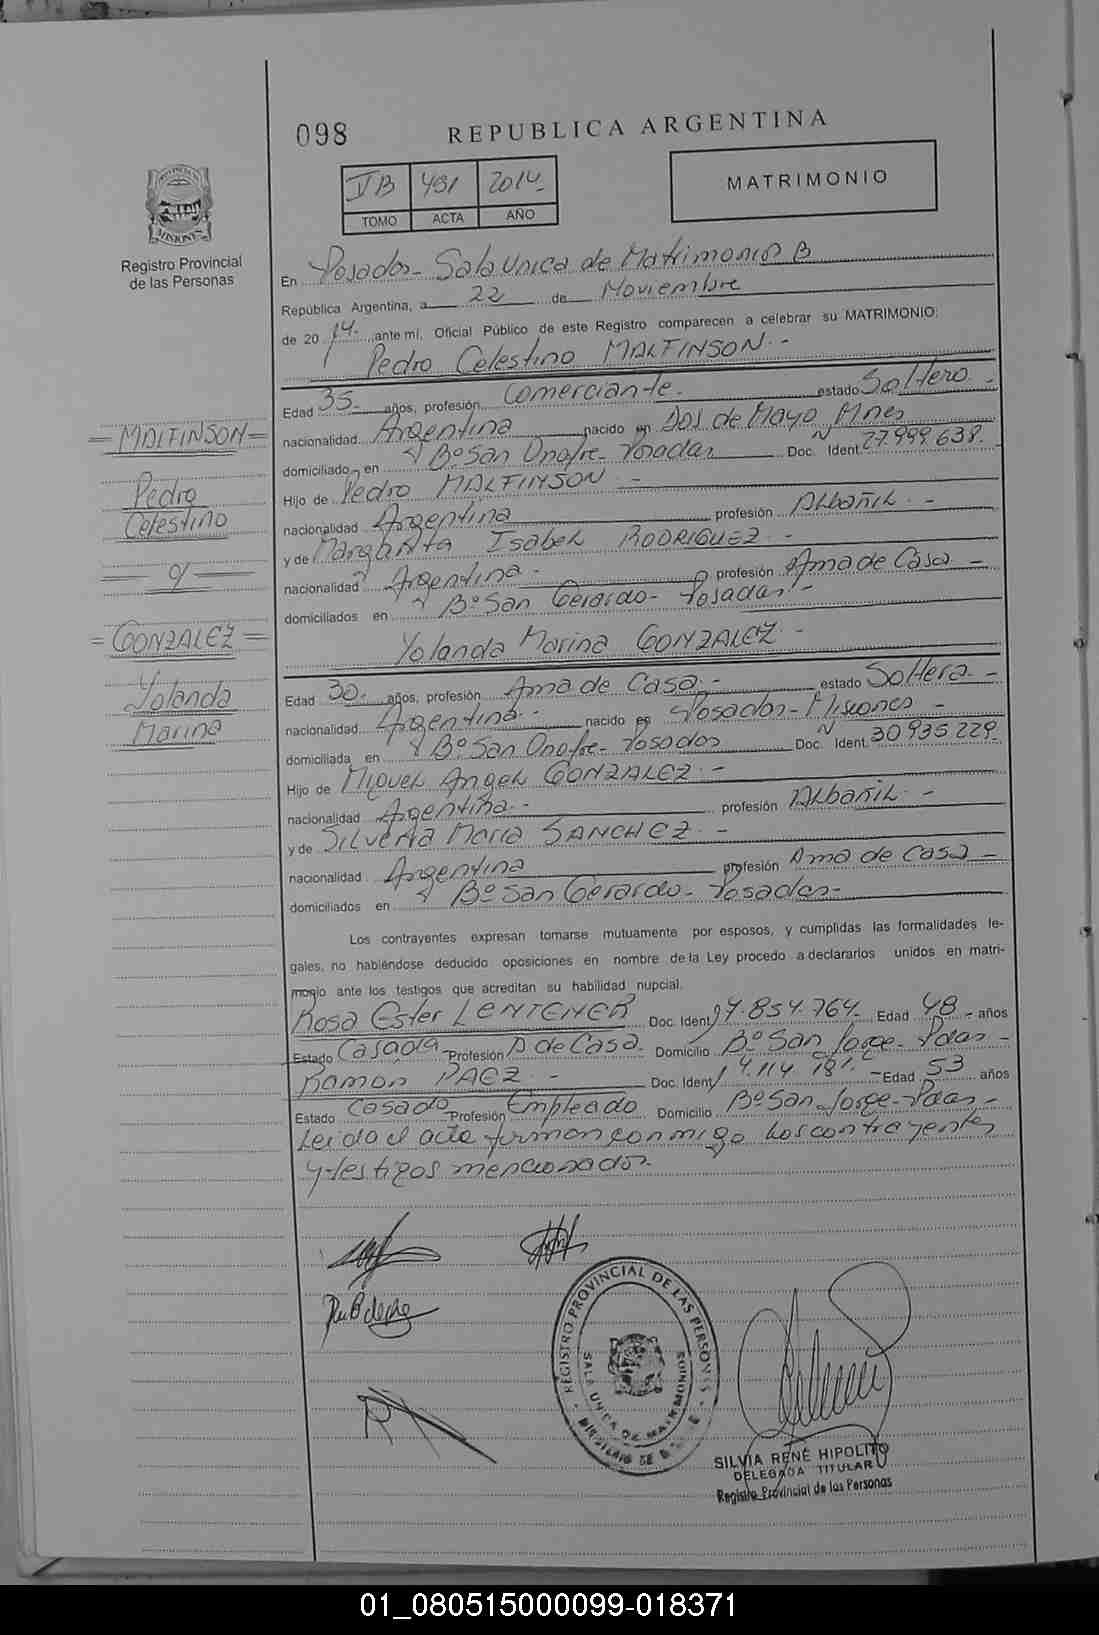 098
REPUBLICA ARGENTINA
MATRIMONIO
VB 491 2014
TOMO ACTA AÑO
PROVINCIA DE MISIONES
Registro Provincial
de las Personas
En Posadas- Sala Unica de Matrimonios B
República Argentina, a 22 de Noviembre
de 20 14.- ante mí, Oficial Público de este Registro comparecen a celebrar su MATRIMONIO:
Pedro Celestino MALFINSON.-
Edad 35.- años, profesión Comerciante.- estado Soltero.-
nacionalidad Argentina nacido en Dos de Mayo Mnes
domiciliado en Bº San Onofre- Posadas Doc. N Ident 27.999.638.
Hijo de Pedro MALFINSON.-
nacionalidad Argentina profesión ALbañiL.-
y de Margarita Isabel RODRIGUEZ.-
nacionalidad Argentina.- profesión Ama de Casa-
domiciliados en Bº San Gerardo- Posadas.-
Yolanda Marina GONZALEZ.-
Edad 30.- años, profesión Ama de Casa.- estado Soltera.-
nacionalidad Argentina.- nacido en Posadas- Misiones-
domiciliada en Bº San Onofre- Posadas Doc. N Ident. 30 935 229
Hijo de Miguel Angel GONZALEZ.-
nacionalidad Argentina.- profesión ALbañiL.-
y de Silveria Maria SANCHEZ.-
nacionalidad Argentina profesión Ama de Casa-
domiciliados en Bº San Gerardo- Posadas-
Los contrayentes expresan tomarse mutuamente por esposos, y cumplidas las formalidades le-
gales, no habiéndose deducido oposiciones en nombre de la Ley procedo a declararlos unidos en matri-
monio ante los testigos que acreditan su habilidad nupcial.
Rosa Ester Doc. Ident 17.854.764.- Edad 48 - años
Estado Casada- Profesión A de Casa. Domicilio Bº San Jorge- Pdas-
Ramon PAEZ.- Doc. Ident Edad 53 años
Estado Casado- Profesión Empleado Domicilio Bº San Jorge- Pdas-
Leida el acta firman conmigo los contrayentes
y testigos mencionados.-
=MALFINSON=
Pedro
Celestino
=GONZALEZ=
Yolanda
Marina
REGISTRO PROVINCIAL DE LAS PERSONAS
SALA UNICA DE MATRIMONIOS
SILVIA RENÉ HIPOLITO
DELEGADA TITULAR
Registro Provincial de las Personas
01_080515000099-018371